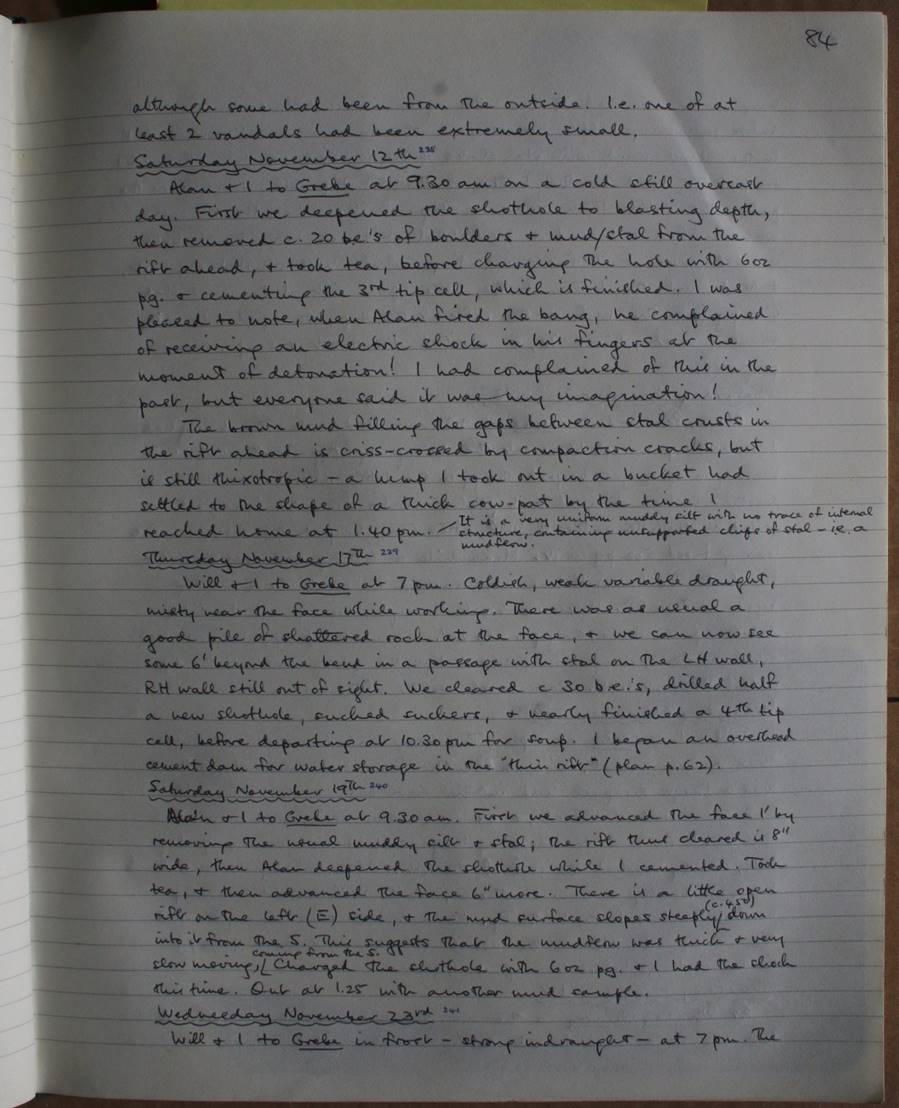 84
although some had been from the outside. I.e. one of at
least 2 vandals had been extremely small.
Saturday November 12th 238
Alan + I to Grebe at 9.30 am on a cold still overcast
day. First we deepened the shothole to blasting depth,
then removed c. 20 b.e.'s of boulders + mud/stal from the
rift ahead, + took tea, before charging the hole with 6oz
pg. + cementing the 3rd tip cell, which is finished. I was
pleased to note, when Alan fired the bang, he complained
of receiving an electric shock in his fingers at the
moment of detonation! I had complained of this in the
past, but everyone said it was my imagination!
The brown mud filling the gaps between stal crusts in
the rift ahead is criss-crossed by compaction cracks, but
is still thixotropic - a lump I took out in a bucket had
settled to the shape of a thick cow-pat by the time I
reached home at 1.40 pm. It is a very uniform muddy silt with no trace of internal
structure, containing unsupported chips of stal - i.e. a
mudflow.
Thursday November 17th 239
Will + I to Grebe at 7 pm. Coldish, weak variable draught,
misty near the face while working. There was as usual a
good pile of shattered rock at the face, + we can now see
some 6' beyond the bend in a passage with stal on the LH wall,
RH wall still out of sight. We cleared c 30 b.e.'s, drilled half
a new shothole, sucked suckers, + nearly finished a 4th tip
cell, before departing at 10.30 pm for soup. I began an overhead
cement dam for water storage in the "thin rift" (plan p.62).
Saturday November 19th 240
Alan + I to Grebe at 9.30 am. First we advanced the face 1' by
removing the usual muddy silt + stal; the rift thus cleared is 8"
wide, then Alan deepened the shothole while I cemented. Took
tea, + then advanced the face 6" more. There is a little open
rift on the left (E) side, + the mud surface slopes steeply (c. 45°) down
into it from the S. This suggests that the mudflow was thick + very
slow moving, coming from the S. Charged the shothole with 6oz pg. + I had the shock
this time. Out at 1.25 with another mud sample.
Wednesday November 23rd 241
Will + I to Grebe in frost - strong indraught - at 7 pm. The